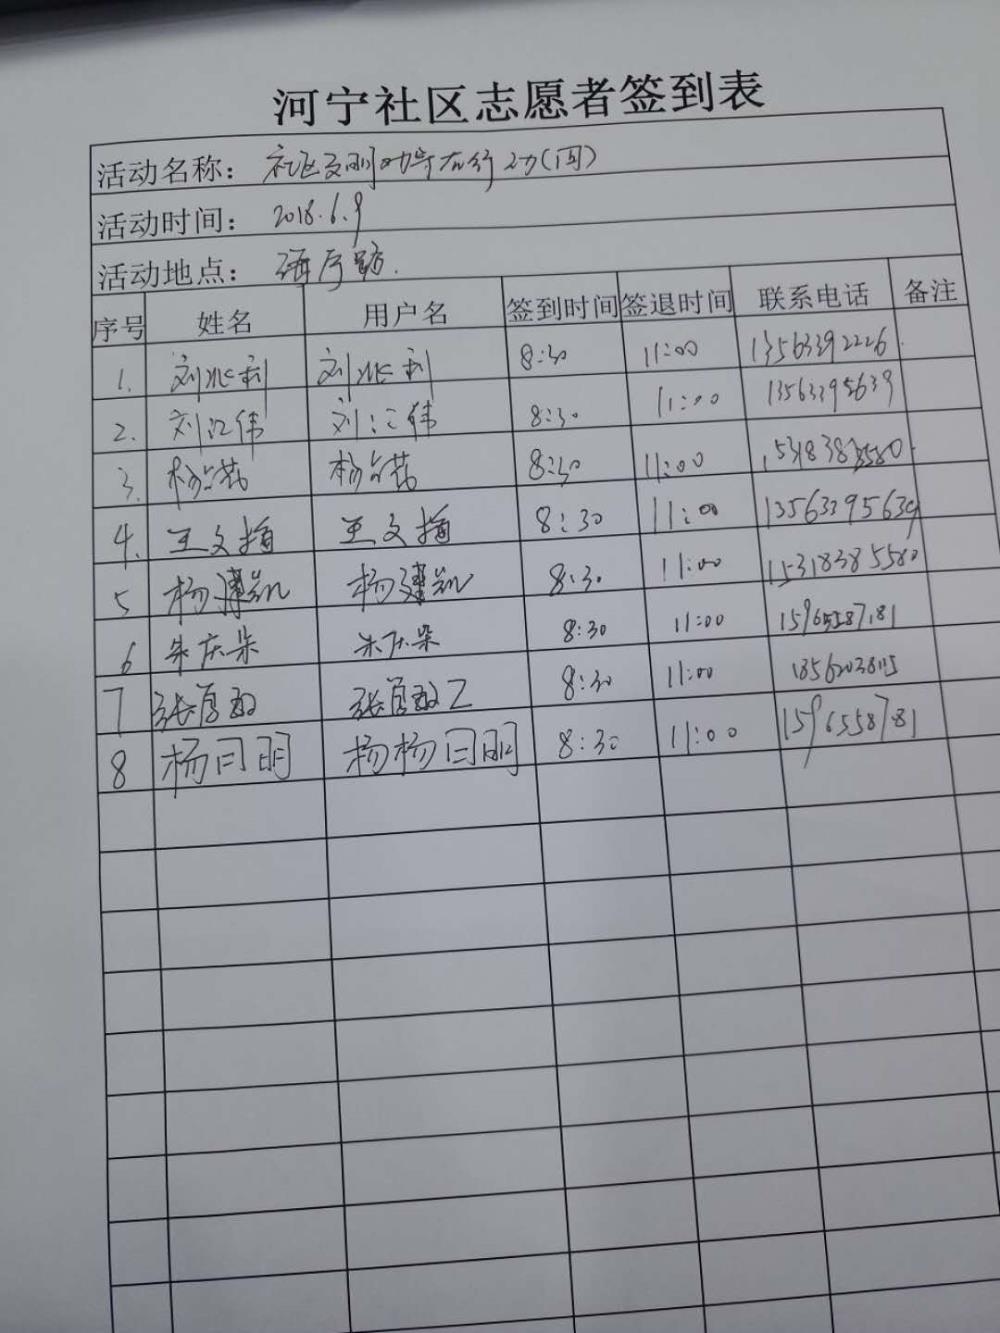 河宁社区志愿者签到表
活动名称：社区文明劝导在行动(周)
活动时间：2018.6.9
活动地点：路.
序号 姓名 用户名 签到时间 签退时间 联系电话 备注
1. 刘兆利 刘兆利 8:30 11:00 13563392226
2. 刘江伟 刘江伟 8:30 11:00 13563395639
3. 8:30 11:00
4. 王文指 王文指 8:30 11:00 13563395639
5 杨建凯 杨建凯 8:30 11:00 15318385580
6 朱庆朵 朱庆朵 8:30 11:00 15965587181
7 8:30 11:00
8 杨曰明 杨杨曰明 8:30 11:00 1596558781